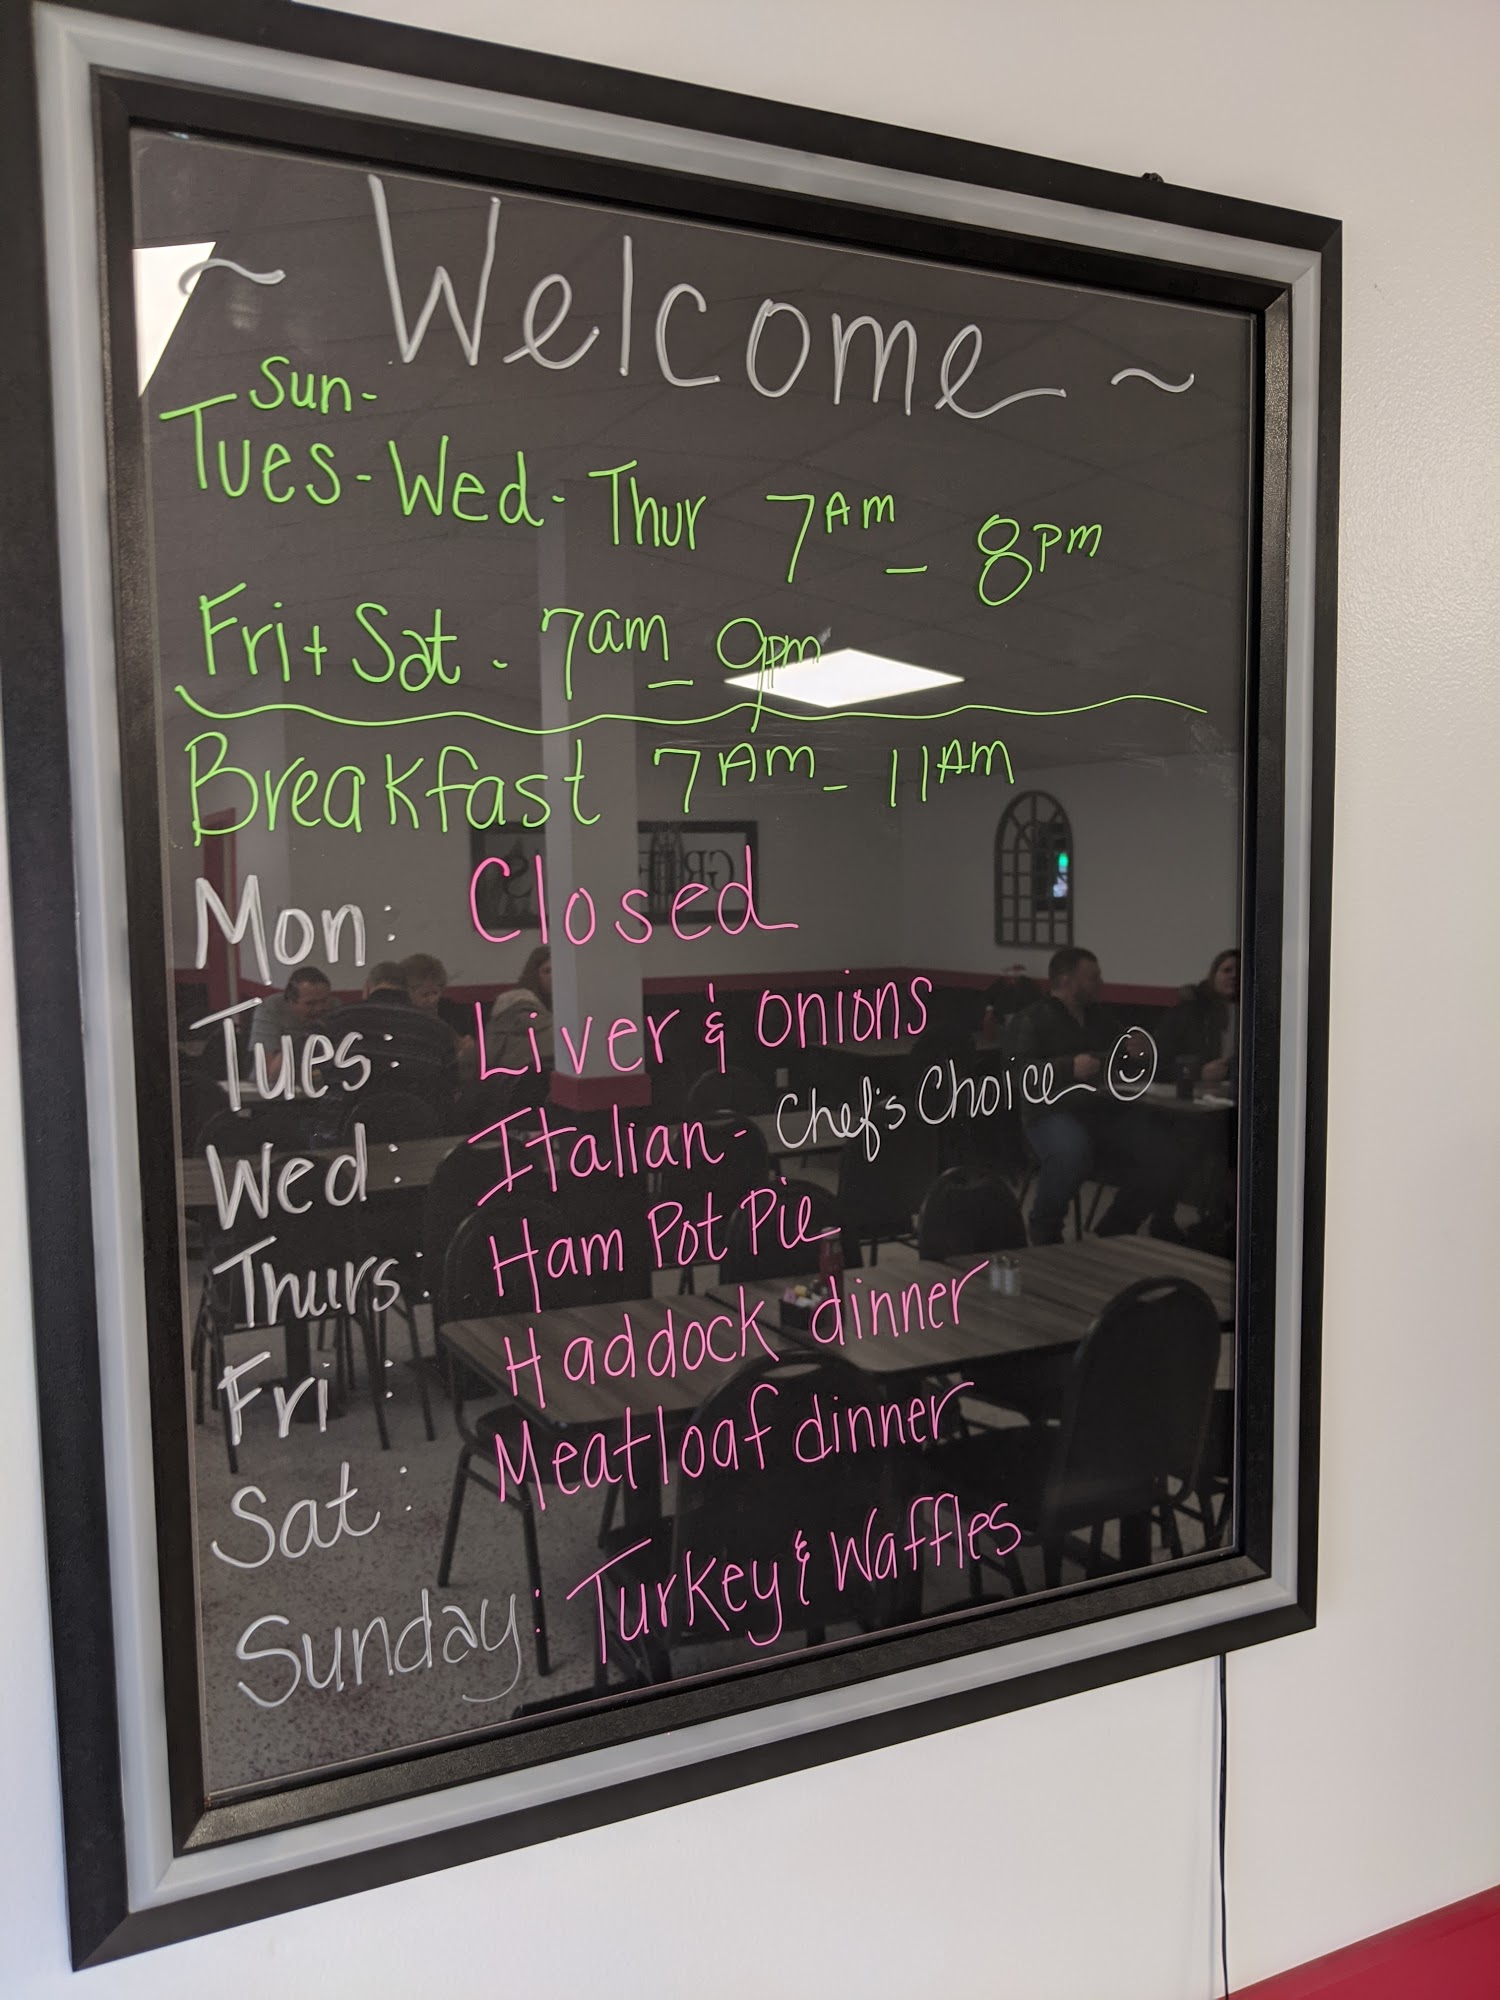 ~ Welcome ~
Sun-
Tues-Wed-Thur 7AM - 8PM
Fri + Sat - 7am - 9pm
Breakfast 7AM - 11AM
Mon: Closed
Tues: Liver & Onions
Wed: Italian - Chef's Choice ☺
Thurs: Ham Pot Pie
Fri: Haddock dinner
Sat: Meatloaf dinner
Sunday: Turkey & Waffles